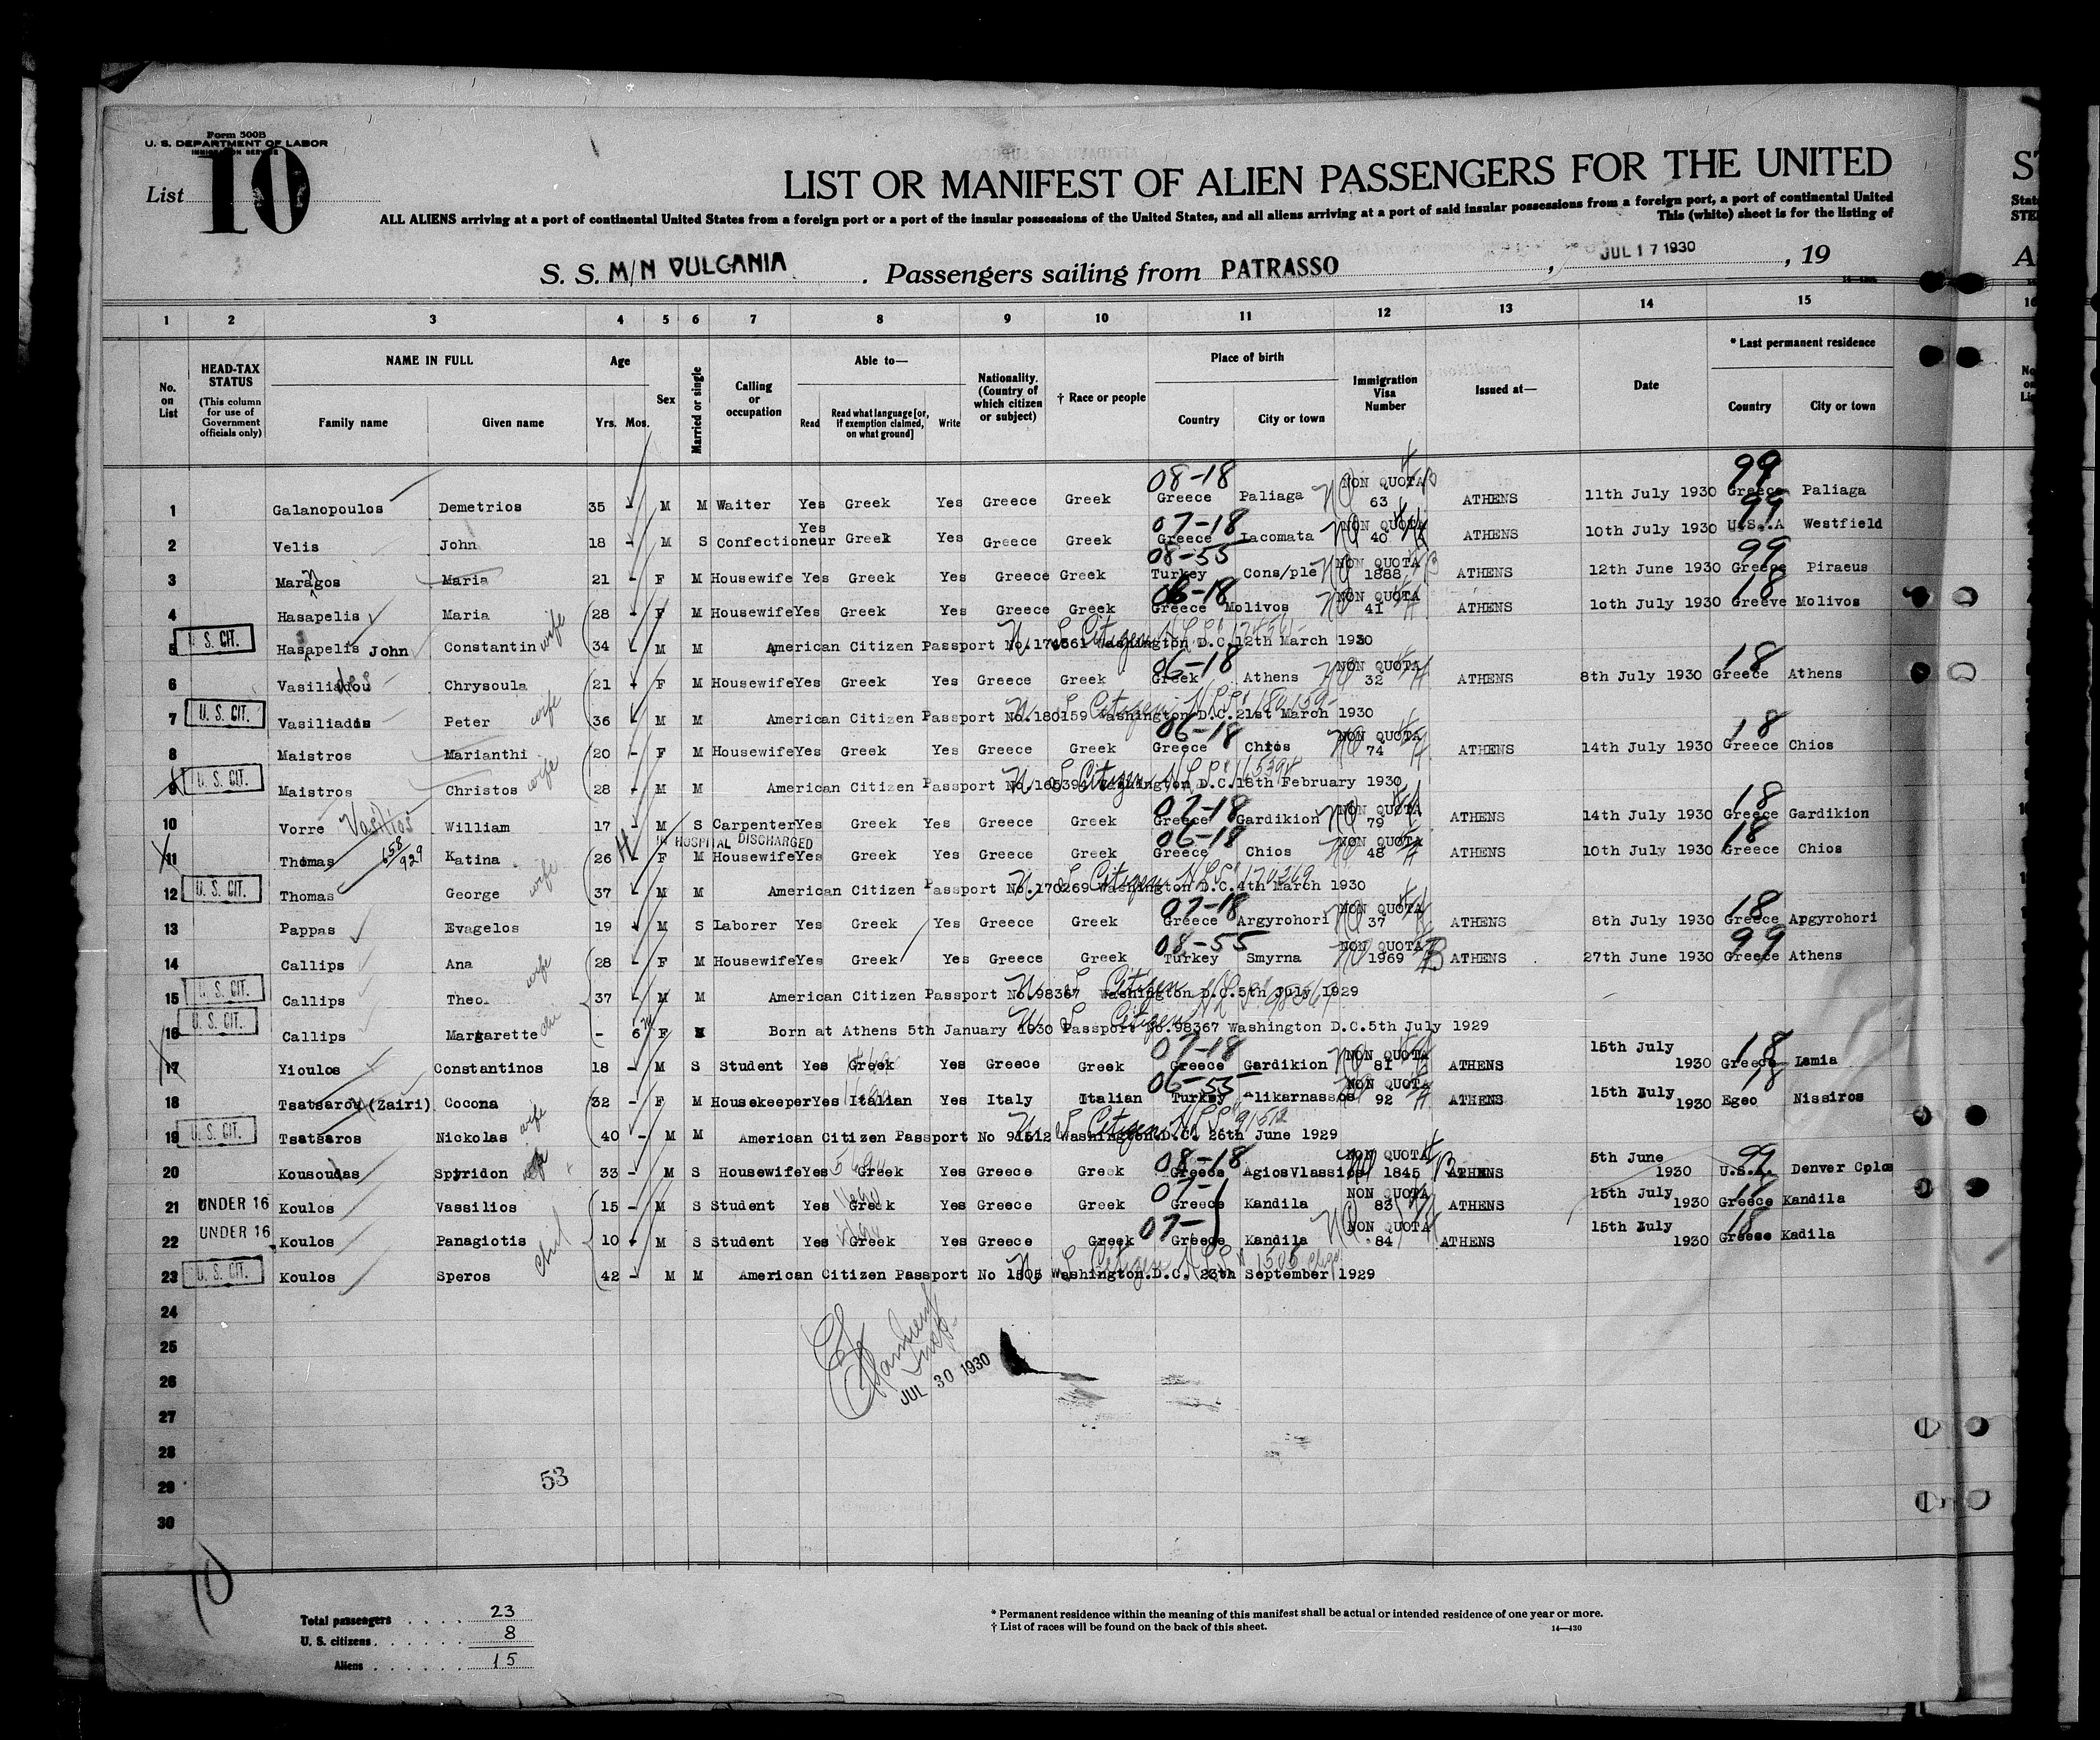 Form 500B
U. S. DEPARTMENT OF LABOR
IMMIGRATION SERVICE
List 10
LIST OR MANIFEST OF ALIEN PASSENGERS FOR THE UNITED
ALL ALIENS arriving at a port of continental United States from a foreign port or a port of the insular possessions of the United States, and all aliens arriving at a port of said insular possessions from a foreign port, a port of continental United
This (white) sheet is for the listing of
S. S. M/N VULCANIA. Passengers sailing from PATRASSO, JUL 17 1930, 19
1 2 3 4 5 6 7 8 9 10 11 12 13 14 15
No. on List
HEAD-TAX STATUS (This column for use of Government officials only)
NAME IN FULL Family name Given name
Age Yrs. Mos.
Sex
Married or single
Calling or occupation
Able to— Read Read what language [or, if exemption claimed, on what ground] Write
Nationality. (Country of which citizen or subject)
† Race or people
Place of birth Country City or town
Immigration Visa Number
Issued at—
Date
* Last permanent residence Country City or town
08-18 99
1 Galanopoulos Demetrios 35 - M M Waiter Yes Greek Yes Greece Greek Greece Paliaga NON QUOTA 63 ATHENS 11th July 1930 Greece Paliaga
07-18 99
2 Velis John 18 - M S Confectioneur Yes Greek Yes Greece Greek Greece Lacomata NON QUOTA 40 ATHENS 10th July 1930 U.S.A Westfield
08-55 99
3 Maragos Maria 21 - F M Housewife Yes Greek Yes Greece Greek Turkey Cons/ple NON QUOTA 1888 ATHENS 12th June 1930 Greece Piraeus
06-18 18
4 Hasapelis Maria wife 28 - F M Housewife Yes Greek Yes Greece Greek Greece Molivos NON QUOTA 41 ATHENS 10th July 1930 Greeve Molivos
5 U. S. CIT. Hasapelis John Constantin 34 - M M American Citizen Passport No.174561 Washington D.C.12th March 1930
06-18 18
6 Vasiliadou Chrysoula wife 21 - F M Housewife Yes Greek Yes Greece Greek Greek Athens NON QUOTA 32 ATHENS 8th July 1930 Greece Athens
7 U. S. CIT. Vasiliadis Peter 36 - M M American Citizen Passport No.180159 Washington D.C.21st March 1930
06-18 18
8 Maistros Marianthi wife 20 - F M Housewife Yes Greek Yes Greece Greek Greece Chios NON QUOTA 74 ATHENS 14th July 1930 Greece Chios
9 U. S. CIT. Maistros Christos 28 - M M American Citizen Passport No.165394 Washington D.C.18th February 1930
07-18 18
10 Vorre Vasilios William 17 - M S Carpenter Yes Greek Yes Greece Greek Greece Gardikion NON QUOTA 79 ATHENS 14th July 1930 Greece Gardikion
IN HOSPITAL DISCHARGED 06-18 18
11 Thomas 658/929 Katina wife 26 - F M Housewife Yes Greek Yes Greece Greek Greece Chios NON QUOTA 48 ATHENS 10th July 1930 Greece Chios
12 U. S. CIT. Thomas George 37 - M M American Citizen Passport No.170269 Washington D.C.4th March 1930
07-18 18
13 Pappas Evagelos 19 - M S Laborer Yes Greek Yes Greece Greek Greece Argyrohori NON QUOTA 37 ATHENS 8th July 1930 Greece Argyrohori
08-55 99
14 Callips Ana wife 28 - F M Housewife Yes Greek Yes Greece Greek Turkey Smyrna NON QUOTA 1969 ATHENS 27th June 1930 Greece Athens
15 U. S. CIT. Callips Theo. 37 - M M American Citizen Passport No.98367 Washington D.C.5th July 1929
16 U. S. CIT. Callips Margarette - 6 F Born at Athens 5th January 1930 Passport No.98367 Washington D.C.5th July 1929
07-18 18
17 Yioulos Constantinos 18 - M S Student Yes Greek Yes Greece Greek Greece Gardikion NON QUOTA 81 ATHENS 15th July 1930 Greece Lamia
06-53
18 Tsatsarou (Zairi) Cocona wife 32 - F M Housekeeper Yes Italian Yes Italy Italian Turkey Alikarnassos NON QUOTA 92 ATHENS 15th July 1930 Egeo Nissiros
19 U. S. CIT. Tsatsaros Nickolas 40 - M M American Citizen Passport No 91512 Washington.D.C. 26th June 1929
08-18 99
20 Kousoudas Spyridon 33 - M S Housewife Yes Greek Yes Greece Greek Greece AgiosVlassios NON QUOTA 1845 ATHENS 5th June 1930 U.S.A. Denver Colo
07-
21 UNDER 16 Koulos Vassilios 15 - M S Student Yes Greek Yes Greece Greek Greece Kandila NON QUOTA 83 ATHENS 15th July 1930 Greece Kandila
07- 18
22 UNDER 16 Koulos Panagiotis 10 - M S Student Yes Greek Yes Greece Greek Greece Kandila NON QUOTA 84 ATHENS 15th July 1930 Greece Kadila
23 U. S. CIT. Koulos Speros 42 - M M American Citizen Passport No 1505 Washington.D.C. 23th September 1929
24
25
JUL 30 1930
26
27
28
29 53
30
10
Total passengers 23
U. S. citizens 8
Aliens 15
* Permanent residence within the meaning of this manifest shall be actual or intended residence of one year or more.
† List of races will be found on the back of this sheet.
14—430